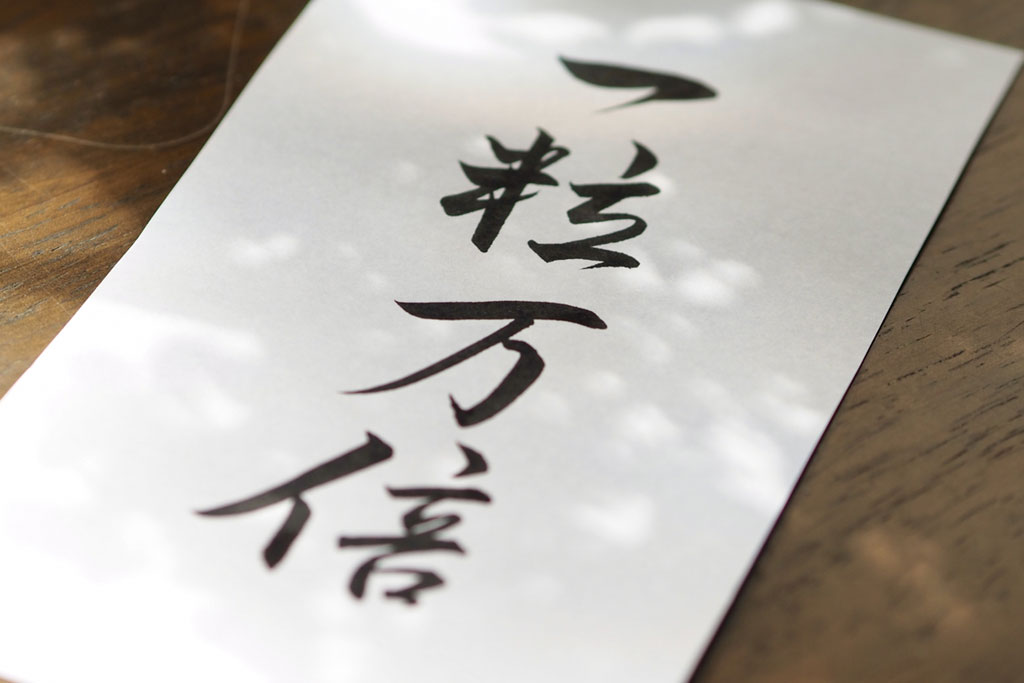 一粒万倍